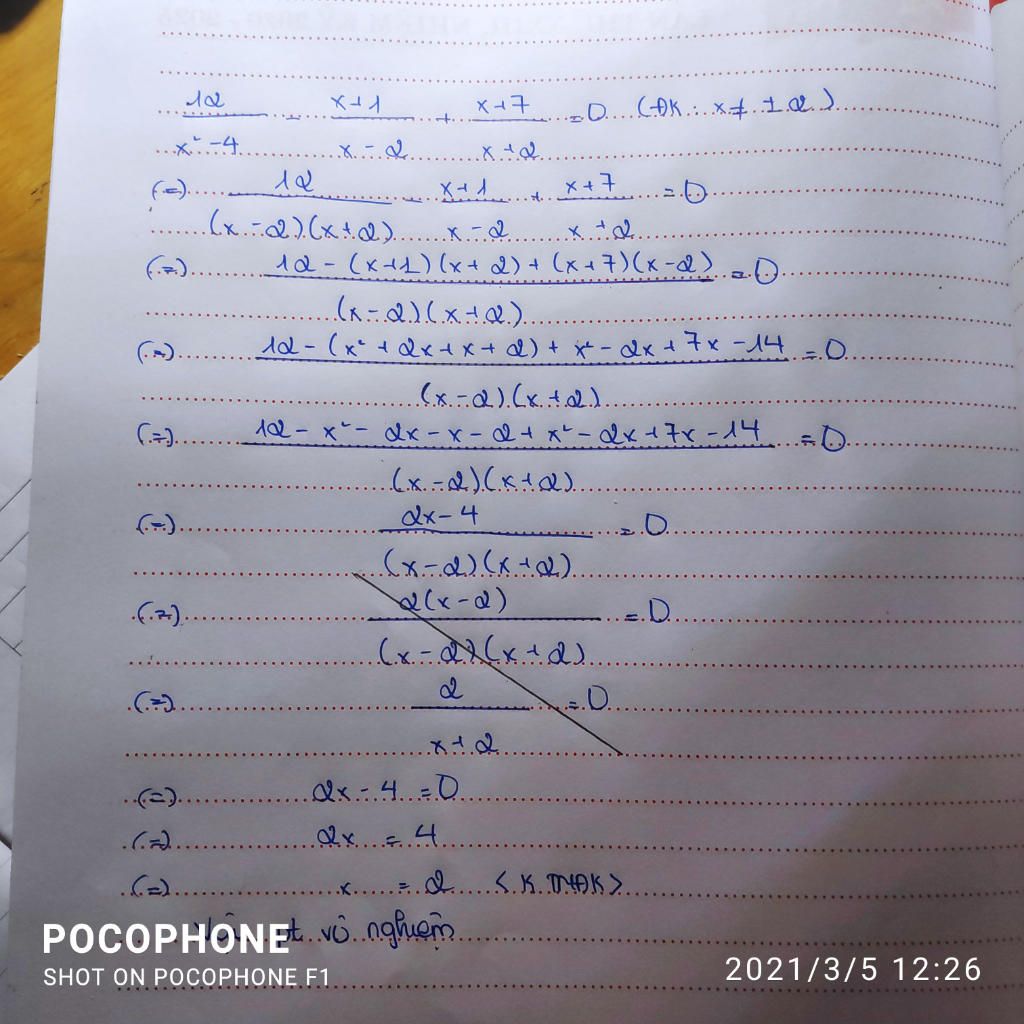 12/(x² - 4) - (x+1)/(x - 2) + (x+7)/(x+2) = 0 (ĐK: x ≠ ±2)
(=) 12/((x - 2)(x+2)) - (x+1)/(x - 2) + (x+7)/(x+2) = 0
(=) (12 - (x+1)(x+2) + (x+7)(x-2))/((x - 2)(x+2)) = 0
(=) (12 - (x² + 2x + x + 2) + x² - 2x + 7x - 14)/((x - 2)(x+2)) = 0
(=) (12 - x² - 2x - x - 2 + x² - 2x + 7x - 14)/((x - 2)(x+2)) = 0
(=) (2x - 4)/((x - 2)(x+2)) = 0
(=) 2(x - 2)/((x - 2)(x+2)) = 0
(=) 2/(x+2) = 0
(=) 2x - 4 = 0
(=) 2x = 4
(=) x = 2 <K TMĐK>
pt vô nghiệm
POCOPHONE
SHOT ON POCOPHONE F1
2021/3/5 12:26